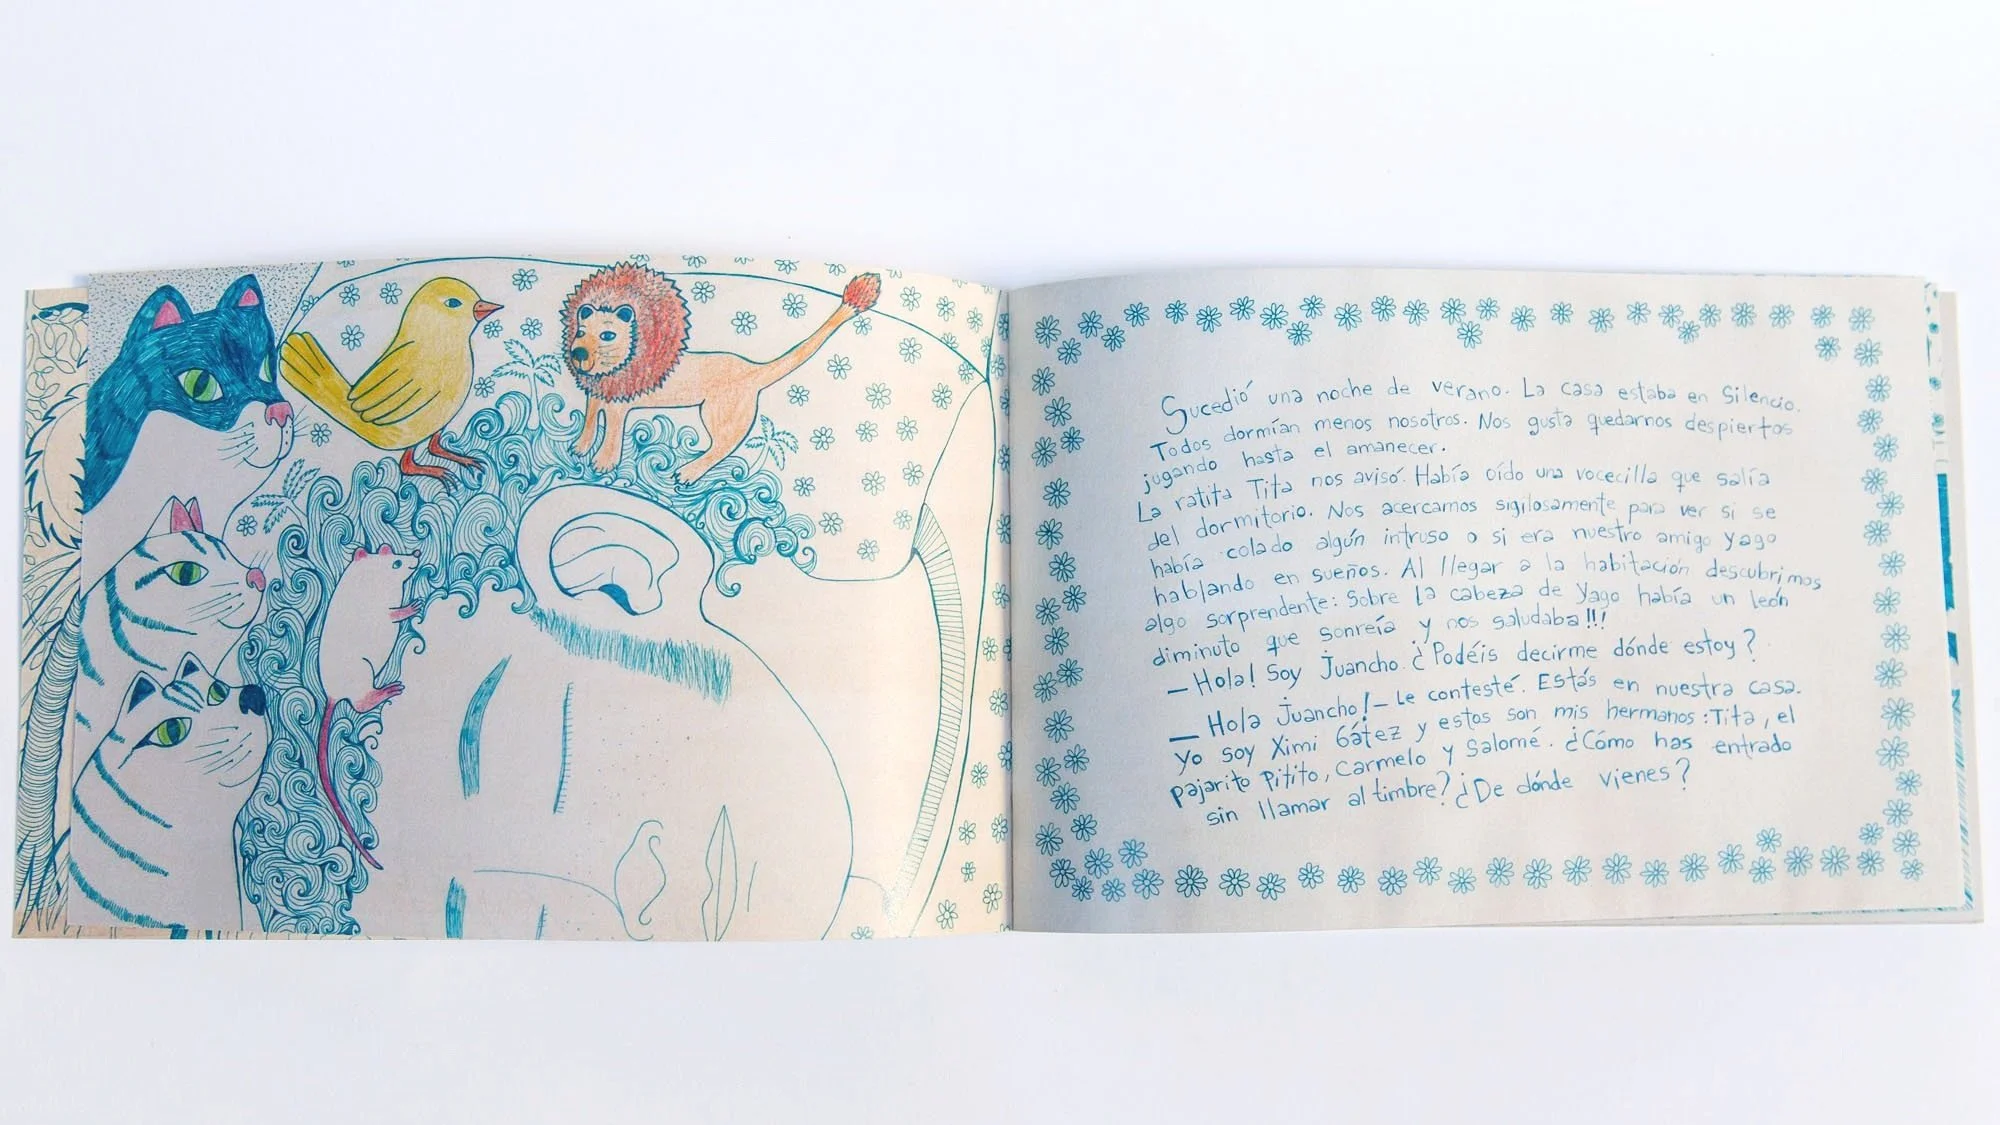 Sucedió una noche de verano. La casa estaba en Silencio.
Todos dormían menos nosotros. Nos gusta quedarnos despiertos
jugando hasta el amanecer.
La ratita Tita nos avisó. Había oído una vocecilla que salía
del dormitorio. Nos acercamos sigilosamente para ver si se
había colado algún intruso o si era nuestro amigo Yago
hablando en sueños. Al llegar a la habitación descubrimos
algo sorprendente: Sobre la cabeza de Yago había un león
diminuto que sonreía y nos saludaba!!!
— Hola! Soy Juancho. ¿Podéis decirme dónde estoy?
— Hola Juancho! — Le contesté. Estás en nuestra casa.
Yo soy Ximi Gátez y estos son mis hermanos: Tita, el
pajarito Pitito, Carmelo y Salomé. ¿Cómo has entrado
sin llamar al timbre? ¿De dónde vienes?